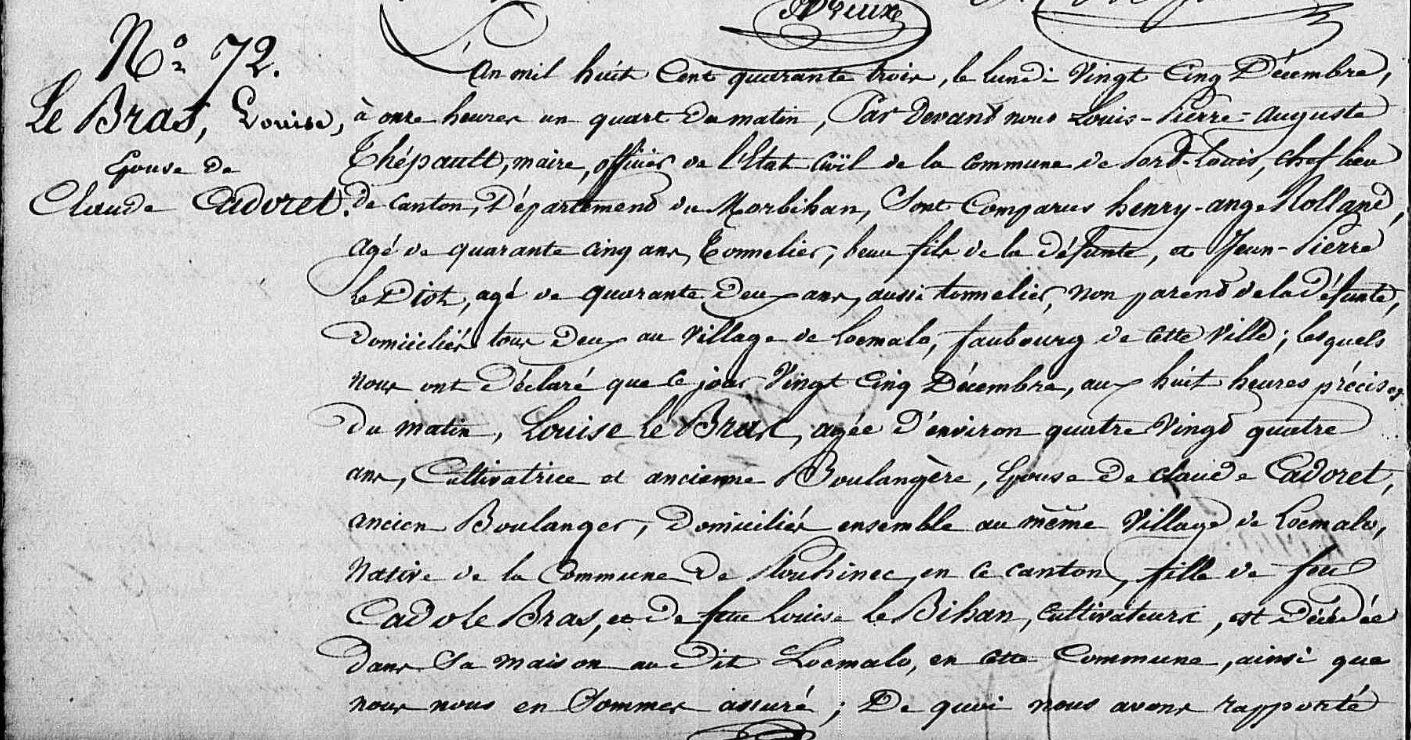 N° 72.
Le Bras, Louise,
Epouse de
Claude Cadoret.
L'An mil huit Cent quarante trois, le lundi Vingt Cinq Décembre,
à onze heures un quart du matin, Par Devant nous Louis-Pierre-Auguste
Thépault, maire, officier de l'Etat Civil de la commune de Port-Louis, chef lieu
de canton, Département du Morbihan, Sont Comparus henry-ange Rolland,
agé de quarante cinq ans, Tonnelier, beau fils de la défunte, et Jean-Pierre
le Diot, agé de quarante Deux ans, aussi tonnelier, non parent de la défunte,
domiciliés tous deux au Village de Locmalo, faubourg de cette Ville; lesquels
nous ont déclaré que ce jour Vingt Cinq Décembre, aux huit heures précises
du matin, Louise Le Bras, agée d'environ quatre Vingt quatre
ans, Cultivatrice et ancienne Boulangère, Epouse De claude Cadoret,
ancien Boulanger, Domiciliés ensemble au même Village de Locmalo,
Native de la Commune De Plouhinec, en ce canton, fille de feu
Cado le Bras, et de feue Louise le Bihan, cultivateurs, est décédée
dans Sa maison au dit Locmalo, en cette Commune, ainsi que
nous nous en Sommes assuré; De quoi nous avons rapporté